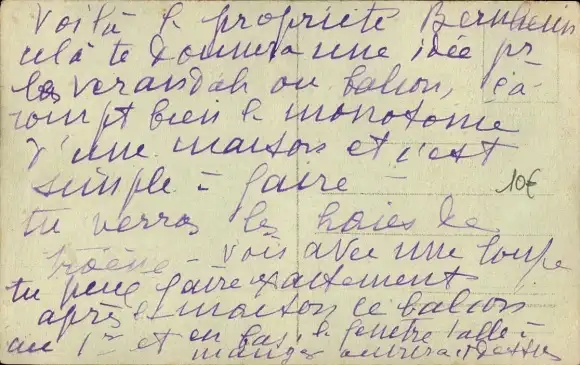 Voilà la propriété Bernheim
celà te donnera une idée pr
les verandah ou balcon, çà
rompt bien le monotome
d'une maison et c'est
simple à faire -
10€
tu verras les haies de
troëne - vois avec une loupe
tu peux faire exactement
après la maison ce balcon
au 1er et en bas, la fenêtre salle à
manger ouvrira dessus